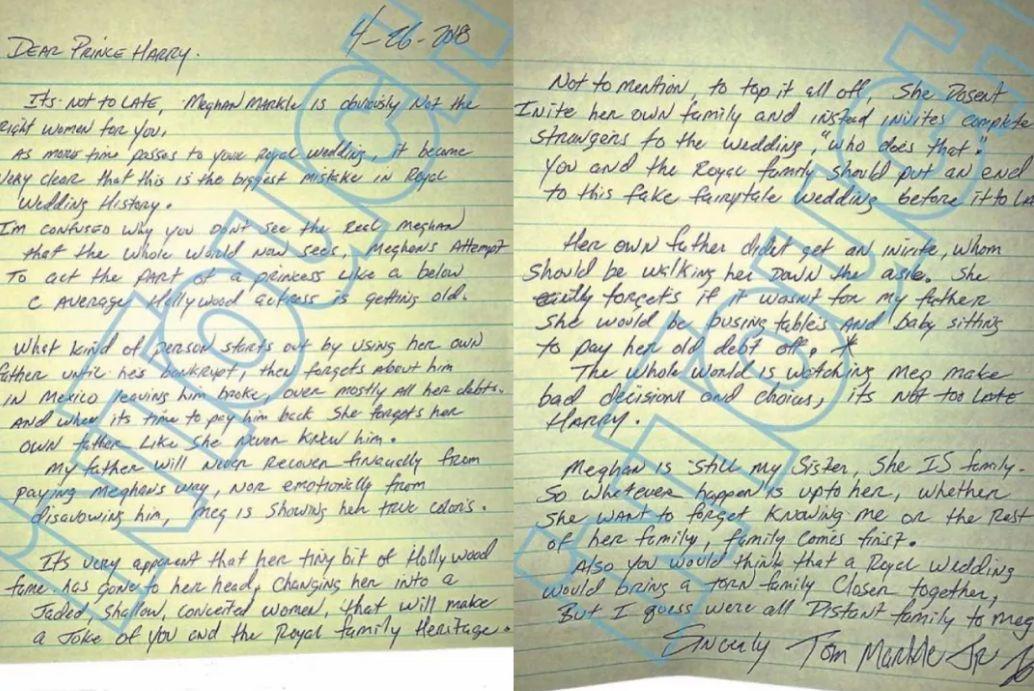 4-26-2018
DEAR PRINCE HARRY.
Its Not to LATE, Meghan Markle is obviously Not the
right women for you,
As more time passes to your Royal wedding, it became
very clear that this is the biggest mistake in Royal
Wedding History.
I'm confused why you don't see the real Meghan
that the whole world now sees, Meghans Attempt
To act the part of a princess like a below
C Average Hollywood actress is getting old.
What kind of person starts out by using her own
father until he's bankrupt, then forgets about him
IN Mexico leaving him broke, over mostly all her debts.
And when its time to pay him back She forgets her
own father Like She Never Knew him.
My father will Never Recover finacially from
paying Meghan's way, Nor emotionally from
disavowing him, Meg is showing her true color's.
Its very apparent that her tiny bit of Hollywood
fame has gone to her head, Changing her into a
Jaded, Shallow, conceited women, that will make
a Joke of you and the Royal family Heritage.
Not to mention, to top it all off, She Dosent
Inite her own family and instead invites complete
strangers to the wedding, "who does that."
You and the Royal family should put an end
to this fake fairytale wedding before it to LA
Her own father didnt get an inite, whom
should be walking her down the asle. She
forgets if it wasnt for my father
She would be busing tables And baby sitting
to pay her old debt off. *
The whole world is watching Meg make
bad decisions and choices, its Not too LATE
HARRY.
Meghan is still my Sister, She IS family.
So whatever happen is upto her, whether
She want to forget knowing me or the Rest
of her family, family comes first.
Also you would think that a Royal Wedding
would bring a torn family Closer together,
But I guess were all Distant family to meg
Sincerly Tom Markle Jr
IN TOUCH
IN TOUCH